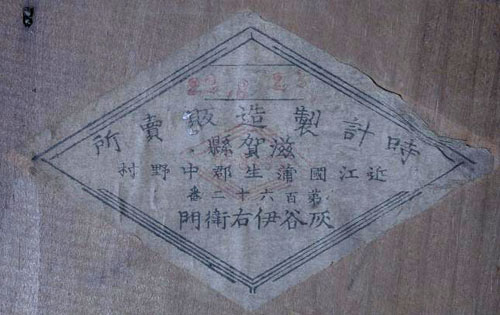 時計製造販賣所
滋賀縣
近江國蒲生郡中野村
第百六十二番
灰谷伊右衛門